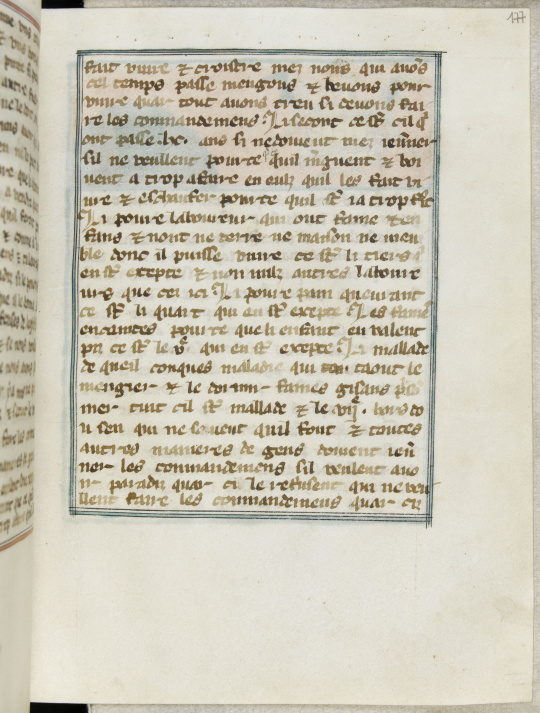 177
fait viure & croistre mes nous qui auōs
cel temps passe mengons & beuons pour
viure quar tout auons creu si deuons fai
re les commandemens Li secont ce sūt cil q̄
ont passe .lx. ans si ne doiuent mie ieuner
sil ne veullent pour ce quil mīguent & boi
uent a trop afaire en eulz quil les fait vi
ure & eschaufer pour ce quil sūt ia trop
Li poure laboureur qui ont fame & en
fans & nont ne terre ne maison ne meu
ble dont il puisse viure ce sūt li tiers q̄
en sūt excepte & non mīe autres laboure
urs que cez ici Li poure pain querant
ce sūt li quart qui en sūt excepte Les fames
encaintes pour ce que li enfant en valent
pis ce sūt le .v. qui en sūt excepte Li mallade
de queil conques maladie qui taout le
mengier & le dormir fames gisans
mer tuit cil sūt mallade & le .vij. hors do
u sen qui ne seuent quil font & toutes
autres manieres de gens doiuent ieu
ner les commandemens sil veulent auo
ir paradis quar ci le refusent qui ne veu
llent faire les commandemens quar